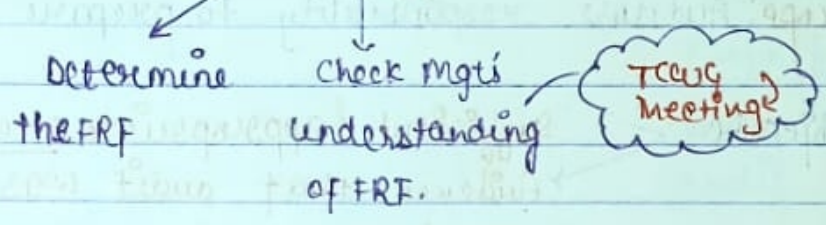 Determine
the FRF
Check Mgt's
understanding
of FRF.
TCWG
Meeting